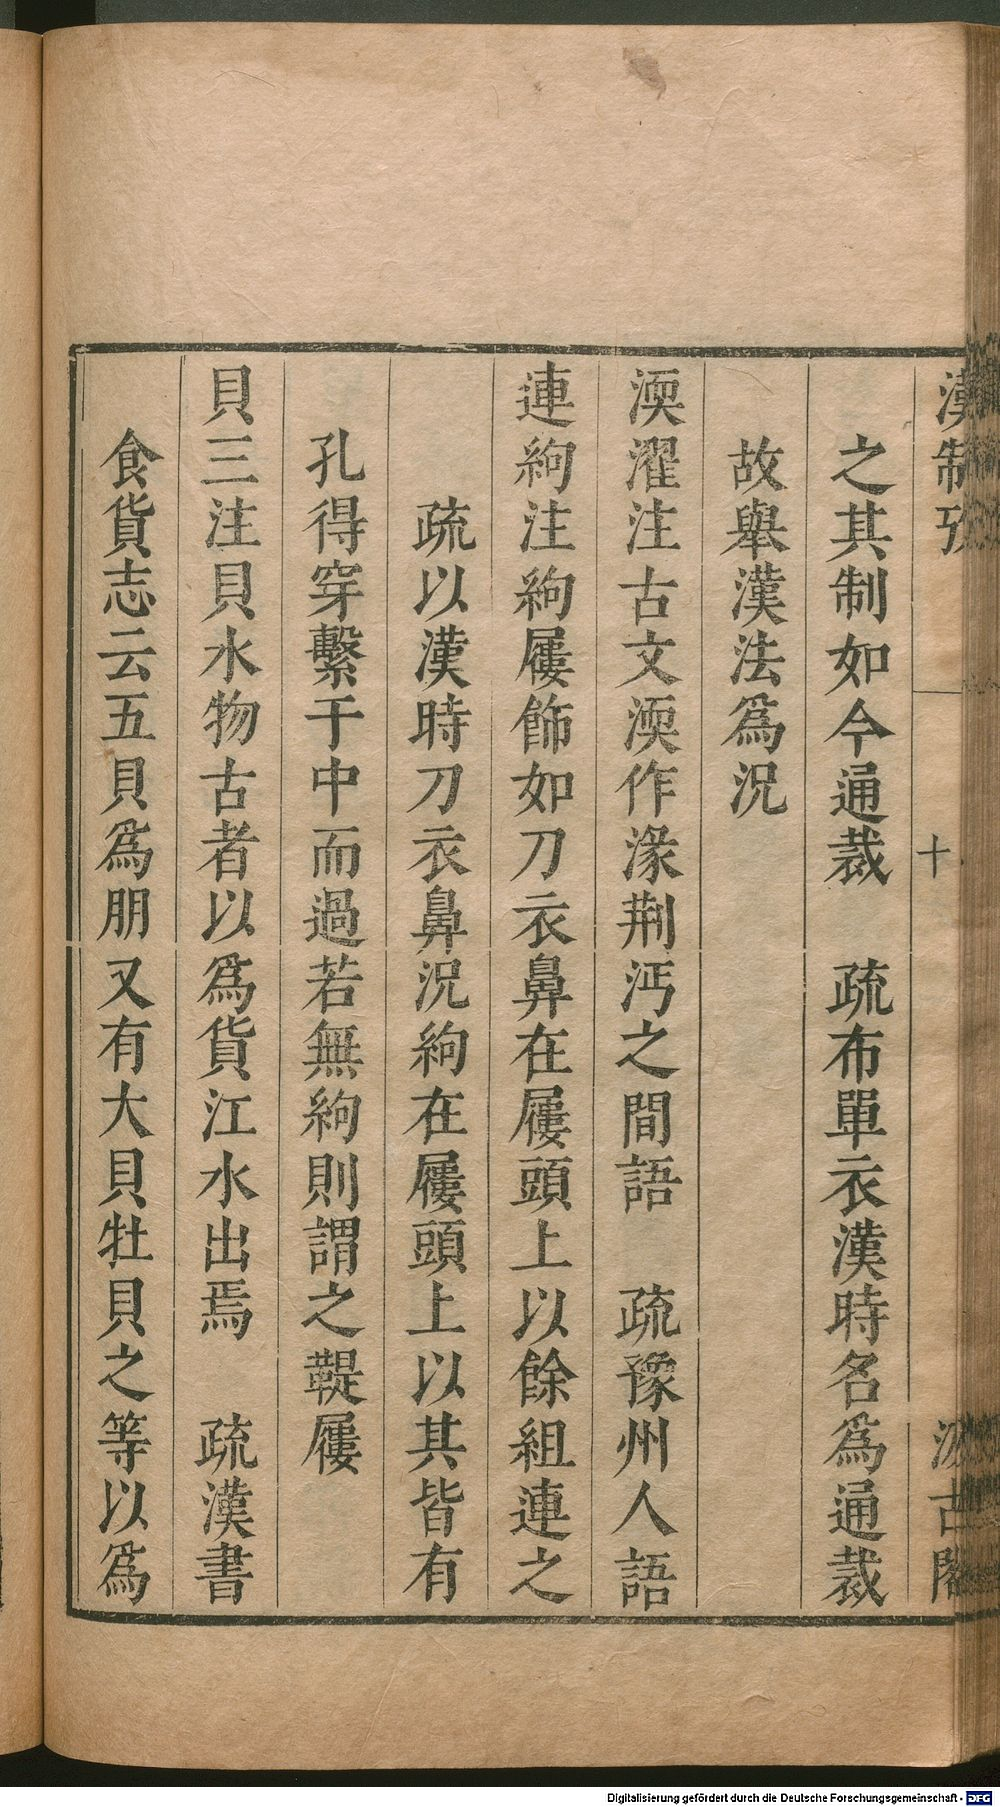 漢制攷
十
汲古閣
之其制如今通裁　疏布單衣漢時名爲通裁
故舉漢法爲況
渜濯注古文渜作湪荆沔之間語　疏豫州人語
連絇注絇屨飾如刀衣鼻在屨頭上以餘組連之
疏以漢時刀衣鼻況絇在屨頭上以其皆有
孔得穿繫于中而過若無絇則謂之鞮屨
貝三注貝水物古者以爲貨江水出焉　疏漢書
食貨志云五貝爲朋又有大貝牡貝之等以爲
Digitalisierung gefördert durch die Deutsche Forschungsgemeinschaft - DFG